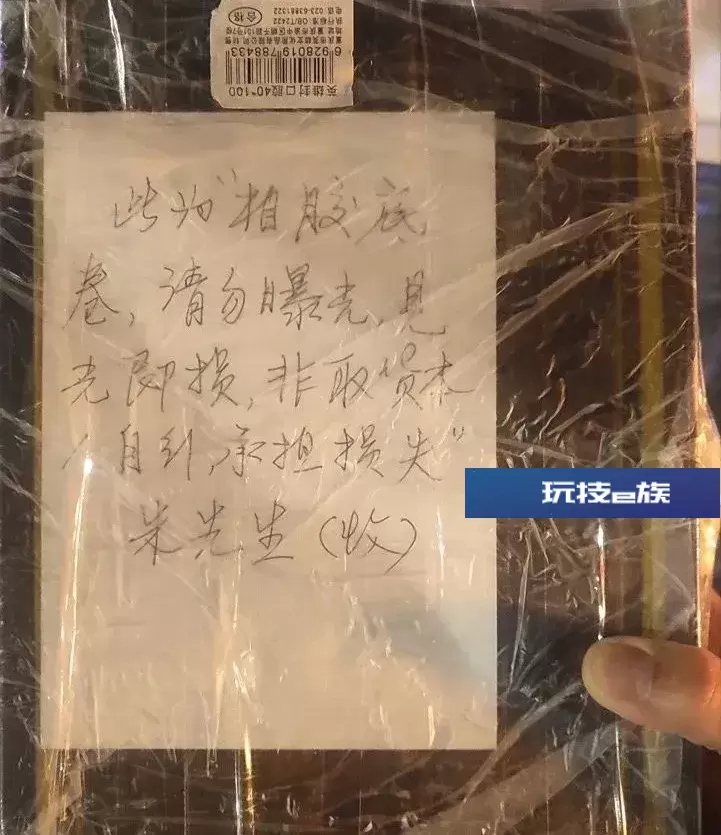 英雄封口胶40*100
6 928019 788433
电话 023-63881322
合格
此为"相胶底
卷,请勿曝光,见
光即损,非取货本
人自引,承担损失"
朱先生(收)
玩技e族